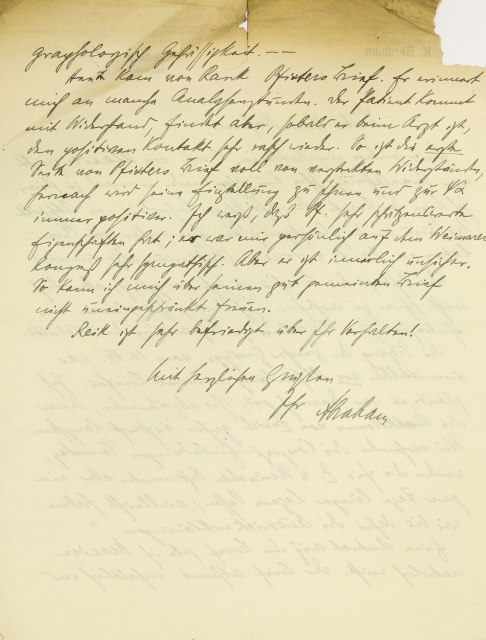 graphologisch Gehässigkeit. —
Heute kam von Rank Pfisters Brief. Er erinnert
mich an manche Analysenstunden. Der Patient kommt
mit Widerstand, findet aber, sobald er beim Arzt ist,
den positiven Kontakt sehr rasch wieder. So ist die erste
Seite von Pfisters Brief voll von versteckten Widerständen,
hernach wird seine Einstellung zu Ihnen und zur ΨA
immer positiver. Ich weiß, daß Pf. sehr schätzenswerte
Eigenschaften hat; er war mir persönlich auf dem Weimarer
Kongreß sehr sympathisch. Aber er ist innerlich unsicher.
So kann ich mich über seinen gut gemeinten Brief
nicht uneingeschränkt freuen.
Reik ist sehr befriedigt über Ihr Verhalten!
Mit herzlichen Grüßen
Ihr Abraham